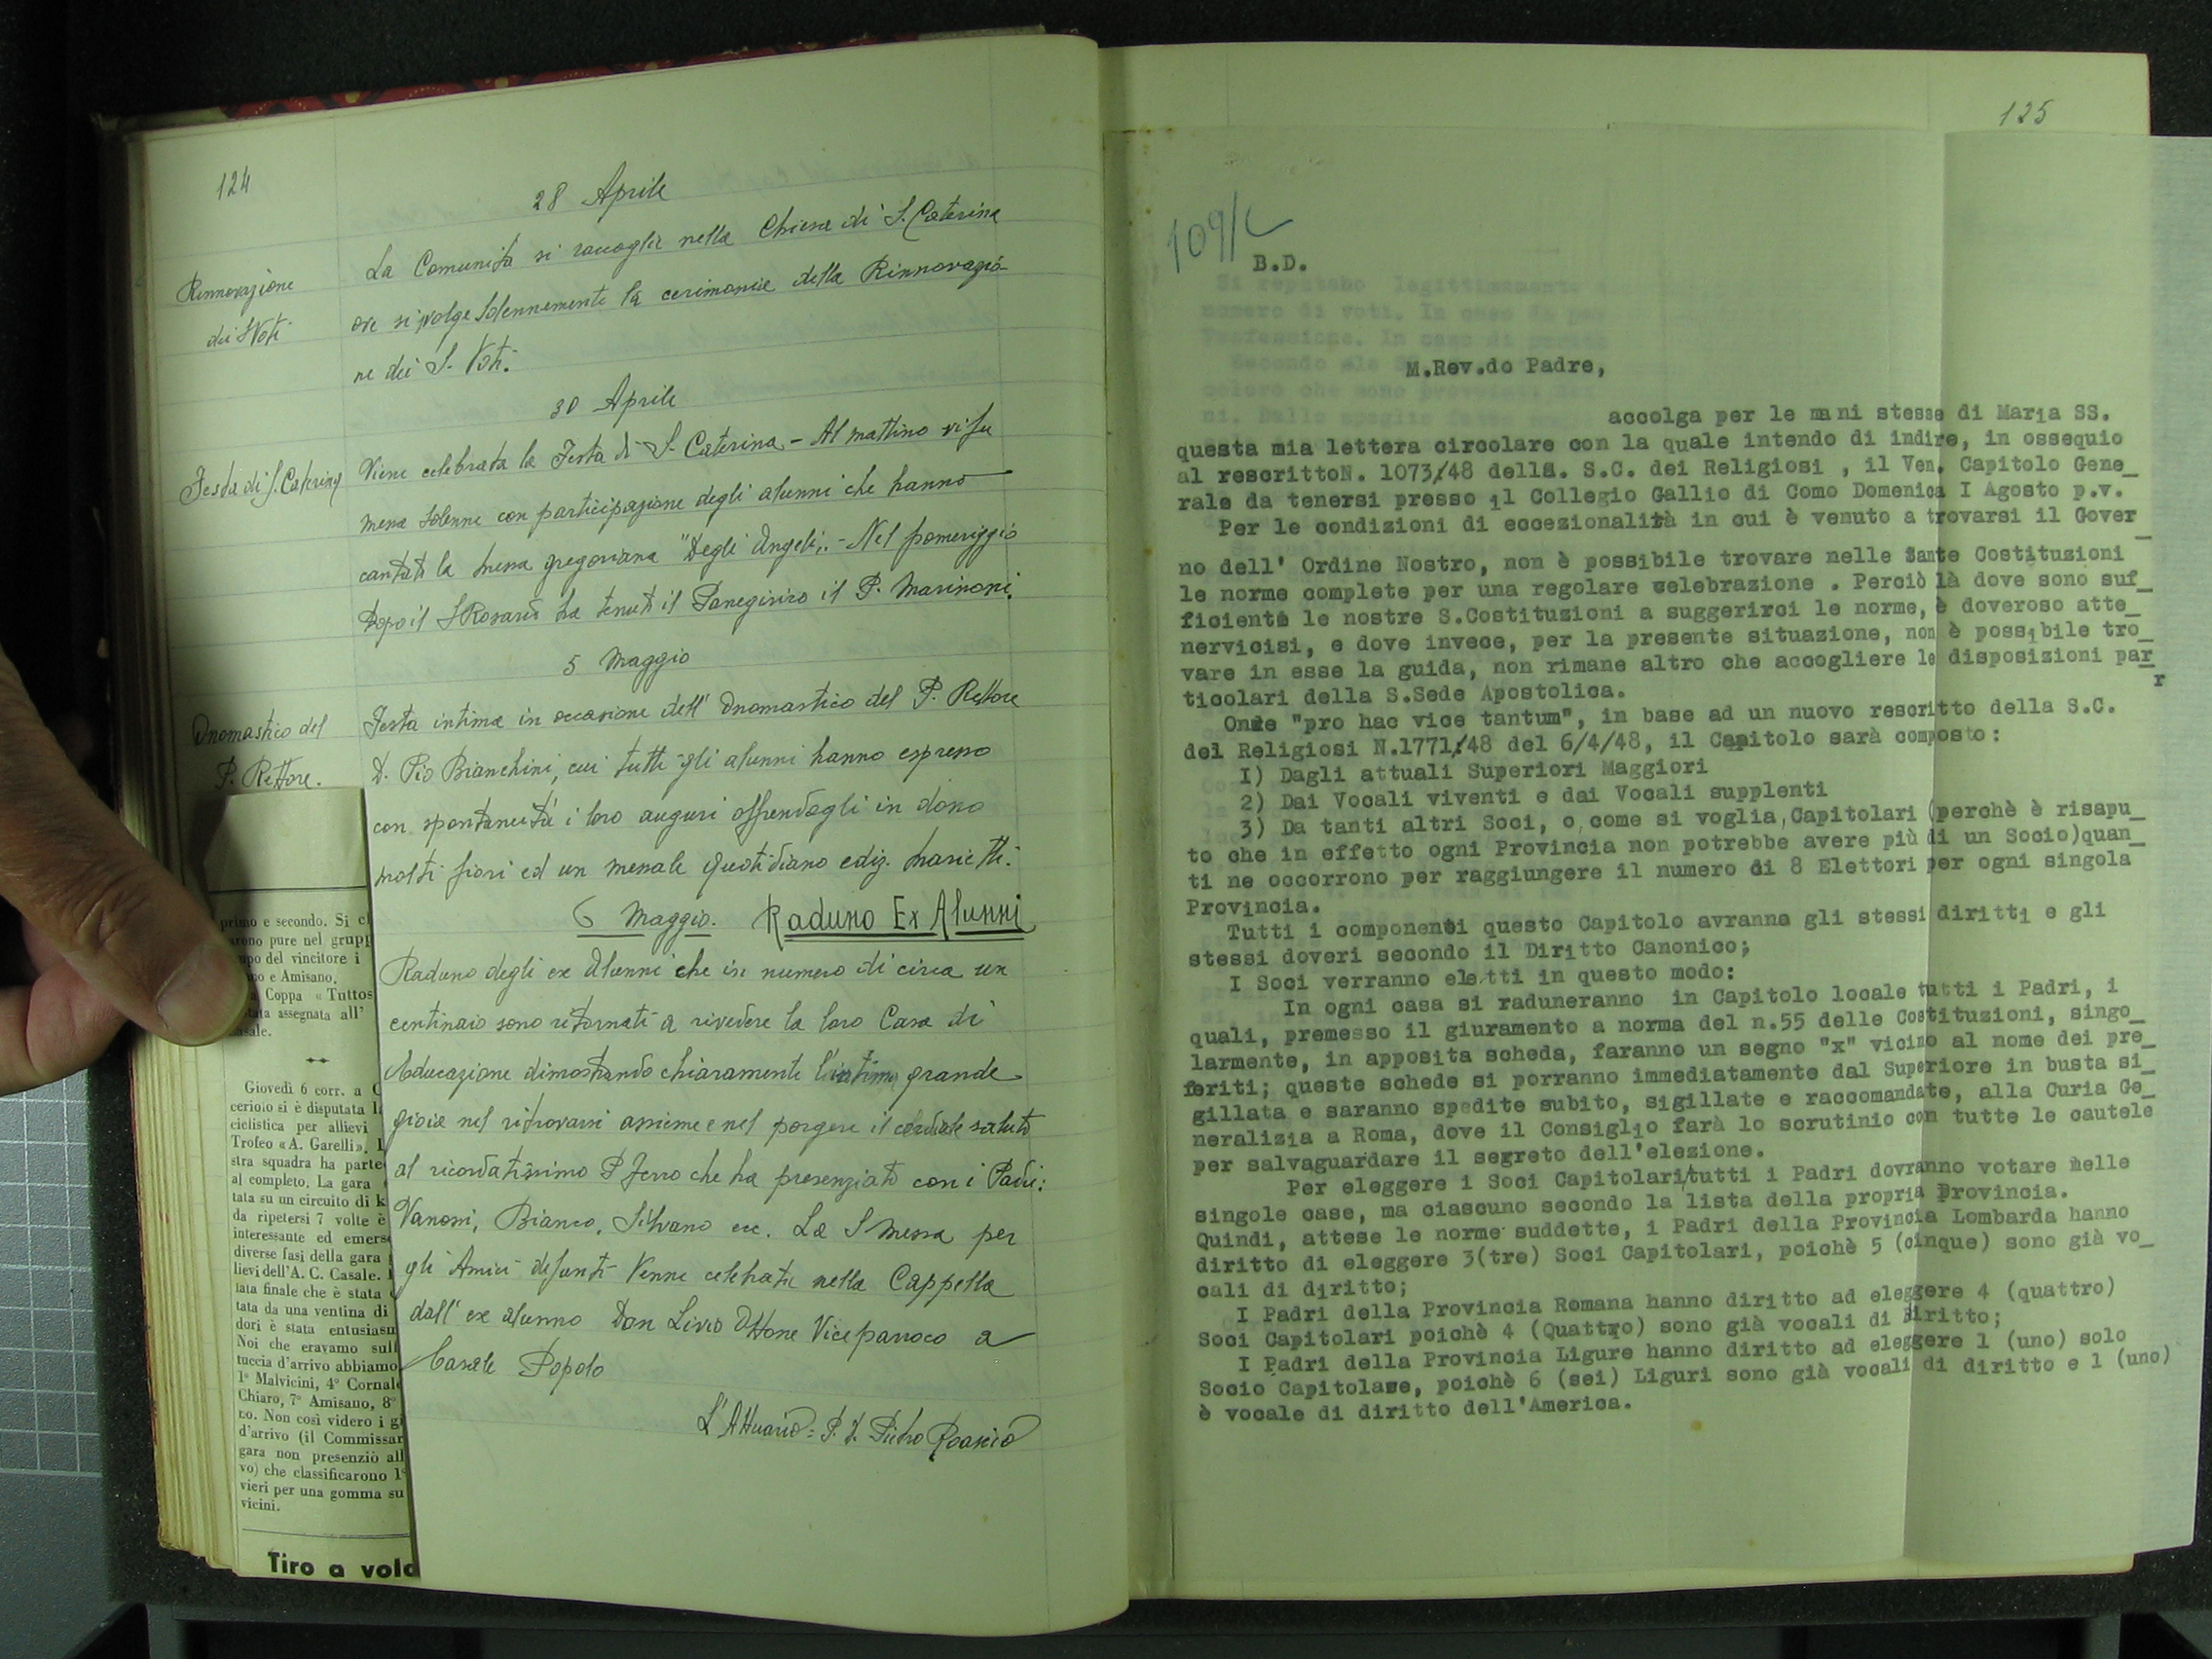 124
28 Aprile
Rinnovazione
dei S Voti
La Comunità si raccoglie nella Chiesa di S. Caterina
ove si svolge solennemente la cerimonia della Rinnovazio-
ne dei S. Voti.
30 Aprile
Festa di S. Caterina
Viene celebrata la Festa di S. Caterina - Al mattino vi fu
messa solenne con participazione degli alunni che hanno
cantato la messa gregoriana "Degli Angeli". - Nel pomeriggio
dopo il S Rosario ha tenuto il Panegirico il P. Marinoni.
5 Maggio
Onomastico del
P. Rettore.
Festa intima in occasione dell' Onomastico del P. Rettore
D. Pio Bianchini, cui tutti gli alunni hanno espresso
con spontaneità i loro auguri offrendogli in dono
molti fiori ed un messale quotidiano ediz. Marietti.
6 Maggio. Raduno Ex Alunni
Raduno degli ex Alunni che in numero di circa un
centinaio sono ritornati a rivedere la loro Casa di
Educazione dimostrando chiaramente l'intima grande
gioia nel ritrovarsi assieme e nel porgere il cordiale saluto
al ricordatissimo P Ferro che ha presenziato con i Padri:
Vanossi, Bianco, Silvano ecc. La S Messa per
gli Amici defunti venne celebrata nella Cappella
dall' ex alunno Don Livio Ottone Viceparroco a
Casale Popolo
L'Attuario: P. D. Pietro Roascio
primo e secondo. Si cl
rono pure nel grupp
po del vincitore i
no e Amisano.
a Coppa « Tuttos
tata assegnata all'
sale.
Giovedì 6 corr. a C
ceriolo si è disputata l
ciclistica per allievi
Trofeo «A. Garelli».
stra squadra ha parte
al completo. La gara
tata su un circuito di k
da ripetersi 7 volte è
interessante ed emers
diverse fasi della gara
lievi dell'A. C. Casale.
lata finale che è stata
tata da una ventina di
dori è stata entusiasm
Noi che eravamo sull
tuccia d'arrivo abbiamo
1° Malvicini, 4° Cornal
Chiaro, 7° Amisano, 8°
to. Non così videro i g
d'arrivo (il Commissar
gara non presenziò all
vo) che classificarono 1°
vieri per una gomma su
vicini.
Tiro a volo
125
109/c
B.D.
M.Rev.do Padre,
accolga per le mani stesse di Maria SS.
questa mia lettera circolare con la quale intendo di indire, in ossequio
al rescrittoN. 1073/48 della. S.C. dei Religiosi , il Ven. Capitolo Gene_
rale da tenersi presso il Collegio Gallio di Como Domenica I Agosto p.v.
Per le condizioni di eccezionalità in cui è venuto a trovarsi il Gover_
no dell' Ordine Nostro, non è possibile trovare nelle Sante Costituzioni
le norme complete per una regolare celebrazione . Perciò là dove sono suf_
ficienti le nostre S.Costituzioni a suggerirci le norme, è doveroso atte_
nervicisi, e dove invece, per la presente situazione, non è possibile tro_
vare in esse la guida, non rimane altro che accogliere le disposizioni par_
ticolari della S.Sede Apostolica.
Onde "pro hac vice tantum", in base ad un nuovo rescritto della S.C.
dei Religiosi N.1771/48 del 6/4/48, il Capitolo sarà composto:
I) Dagli attuali Superiori Maggiori
2) Dai Vocali viventi e dai Vocali supplenti
3) Da tanti altri Soci, o, come si voglia, Capitolari (perchè è risapu_
to che in effetto ogni Provincia non potrebbe avere più di un Socio)quan_
ti ne occorrono per raggiungere il numero di 8 Elettori per ogni singola
Provincia.
Tutti i componenti questo Capitolo avranna gli stessi diritti e gli
stessi doveri secondo il Diritto Canonico;
I Soci verranno eletti in questo modo:
In ogni casa si raduneranno in Capitolo locale tutti i Padri, i
quali, premesso il giuramento a norma del n.55 delle Costituzioni, singo_
larmente, in apposita scheda, faranno un segno "x" vicino al nome dei pre_
feriti; queste schede si porranno immediatamente dal Superiore in busta si_
gillata e saranno spedite subito, sigillate e raccomandate, alla Curia Ge_
neralizia a Roma, dove il Consiglio farà lo scrutinio con tutte le cautele
per salvaguardare il segreto dell'elezione.
Per eleggere i Soci Capitolari/tutti i Padri dovranno votare nelle
singole case, ma ciascuno secondo la lista della propria Provincia.
Quindi, attese le norme suddette, i Padri della Provincia Lombarda hanno
diritto di eleggere 3(tre) Soci Capitolari, poichè 5 (cinque) sono già vo_
cali di diritto;
I Padri della Provincia Romana hanno diritto ad eleggere 4 (quattro)
Soci Capitolari poichè 4 (Quattro) sono già vocali di diritto;
I Padri della Provincia Ligure hanno diritto ad eleggere 1 (uno) solo
Socio Capitolare, poichè 6 (sei) Liguri sono già vocali di diritto e 1 (uno)
è vocale di diritto dell'America.